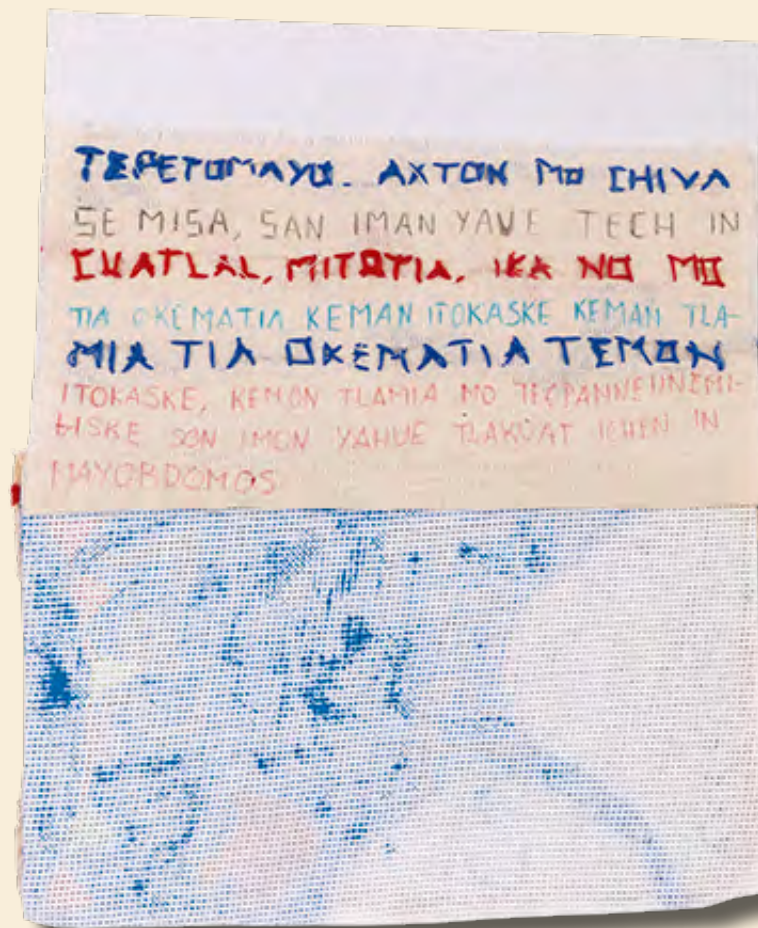 TEPETOMAYO. AXTON MO CHIVA
SE MISA, SAN IMAN YAVE TECH IN
CUATLAL, MITOTIA, IKA NO MO
TIA OKEMATIA KEMAN ITOKASKE KEMAN TLA-
MIA TIA OKEMATIA TEMON
ITOKASKE, KEMON TLAMIA MO
SON IMON YAHUE TLAKUAT ICHEN IN
MAYORDOMOS